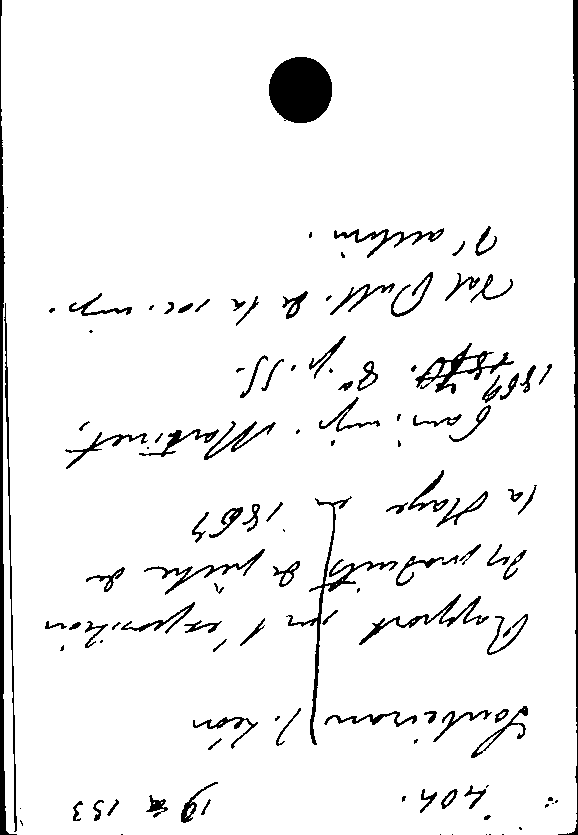 HOH. 19 a 153
Soubeiran, J. Léon
Rapport sur l'exposition
des produits de pêche de
la Haye en 1867
Paris, imp. Martinet,
1869. 8° p. 55.
Bull. de la soc. imp.
d'acclim.